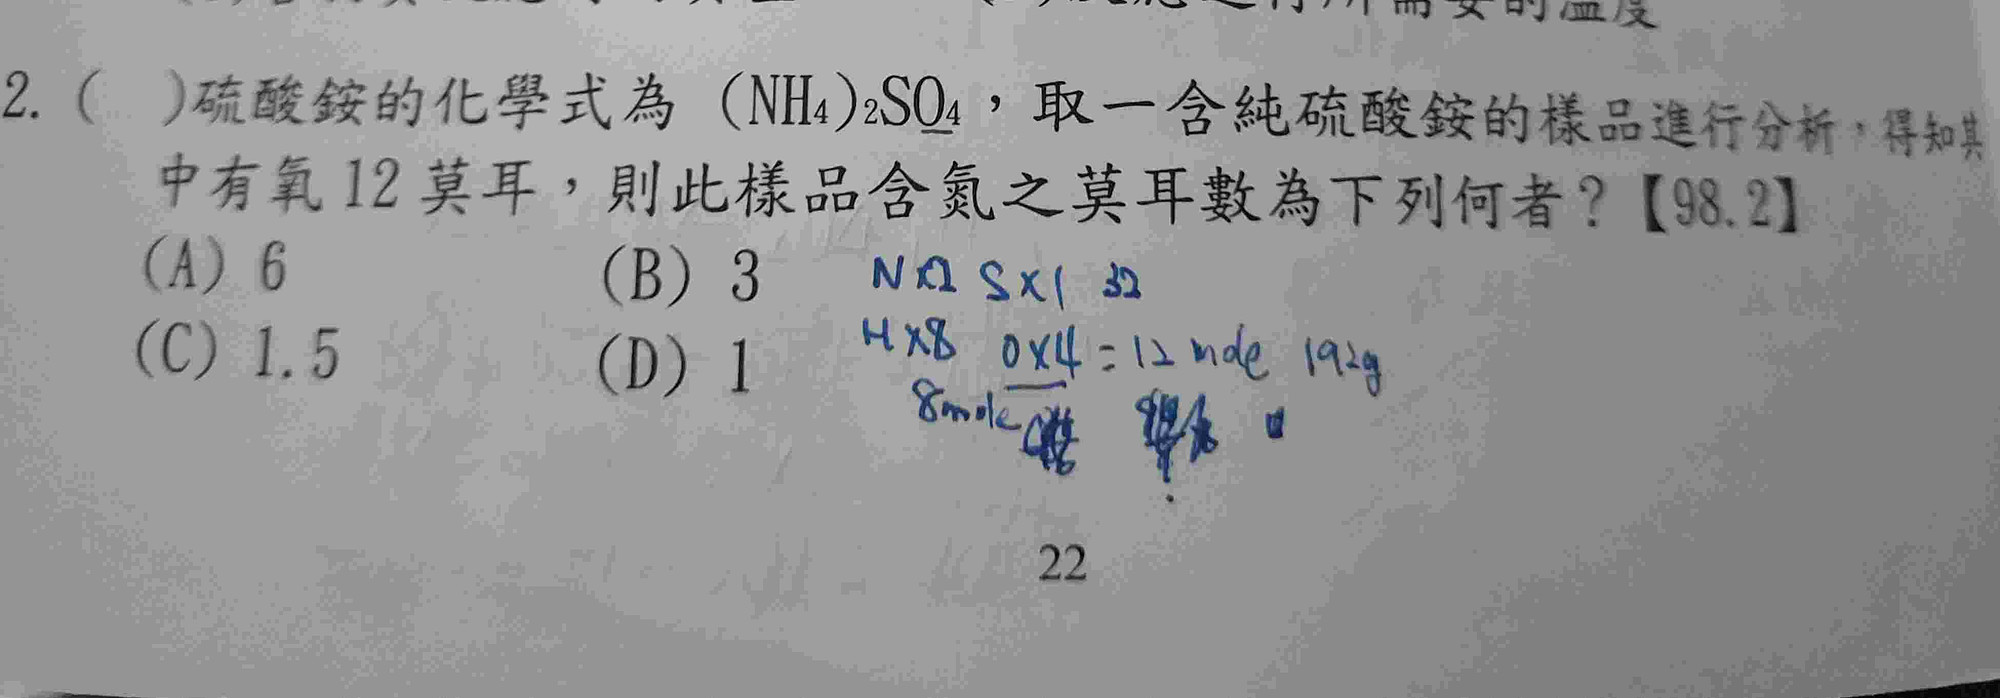 應進行所需要的溫度
2. ( )硫酸銨的化學式為 (NH₄)₂SO₄，取一含純硫酸銨的樣品進行分析，得知其
中有氧 12 莫耳，則此樣品含氮之莫耳數為下列何者？【98.2】
(A) 6 (B) 3
N×2 S×1 32
(C) 1.5 (D) 1
H×8 O×4 = 12 mole 192g
8mole
22